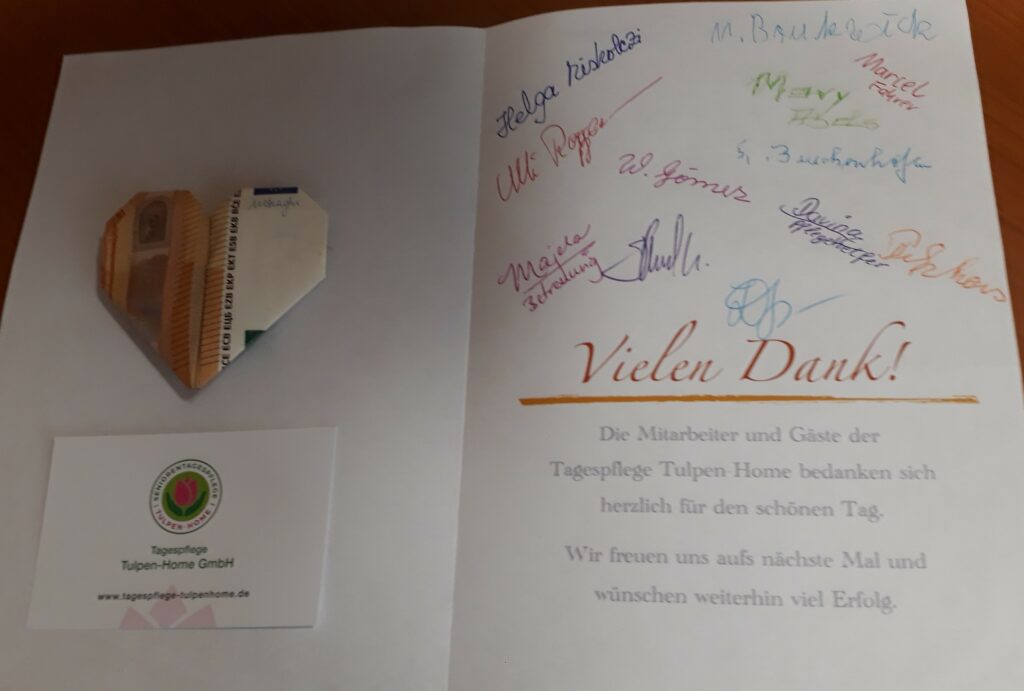 CE ECB ЕЦБ EZB EKP EKT ESB EKB BCE E
SENIORENTAGESPFLEGE
TULPEN-HOME
Tagespflege
Tulpen-Home GmbH
www.tagespflege-tulpenhome.de
Helga Miskolczi
Ulli
W. Gömez
Majela
Betreuung
Marcel
Fahrer
Mary
Davina
Pflegehelfer
Vielen Dank!
Die Mitarbeiter und Gäste der
Tagespflege Tulpen-Home bedanken sich
herzlich für den schönen Tag.
Wir freuen uns aufs nächste Mal und
wünschen weiterhin viel Erfolg.